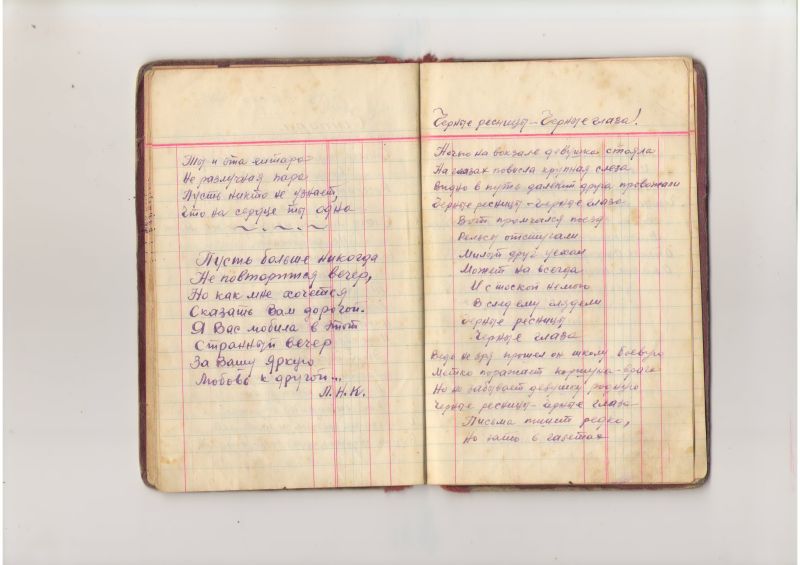 Ты и эта гитара
Не разлучная пара
Пусть никто не узнает,
Что на сердце ты одна
Пусть больше никогда
Не повторится вечер,
Но как мне хочется
Сказать Вам дорогой.
Я Вас любила в этот
Странный вечер
За Вашу яркую
Любовь к другой...
Л.Н.К.
Черные ресницы – Черные глаза!
Ночью на вокзале девушка стояла
На глазах повисла крупная слеза
Видно в путь далекий друга провожали
Черные ресницы – черные глаза
Вот промчался поезд
Рельсы отстучали
Милый друг уехал
Может на всегда
И с тоской немою
В след ему глядели
Черные ресницы
Черные глаза
Ведь не зря прошел он школу боевую
Метко поражает коршуна-врага
Но не забывает девушку родную
Черные ресницы – черные глаза
Письма пишет редко,
Но зато в газетах